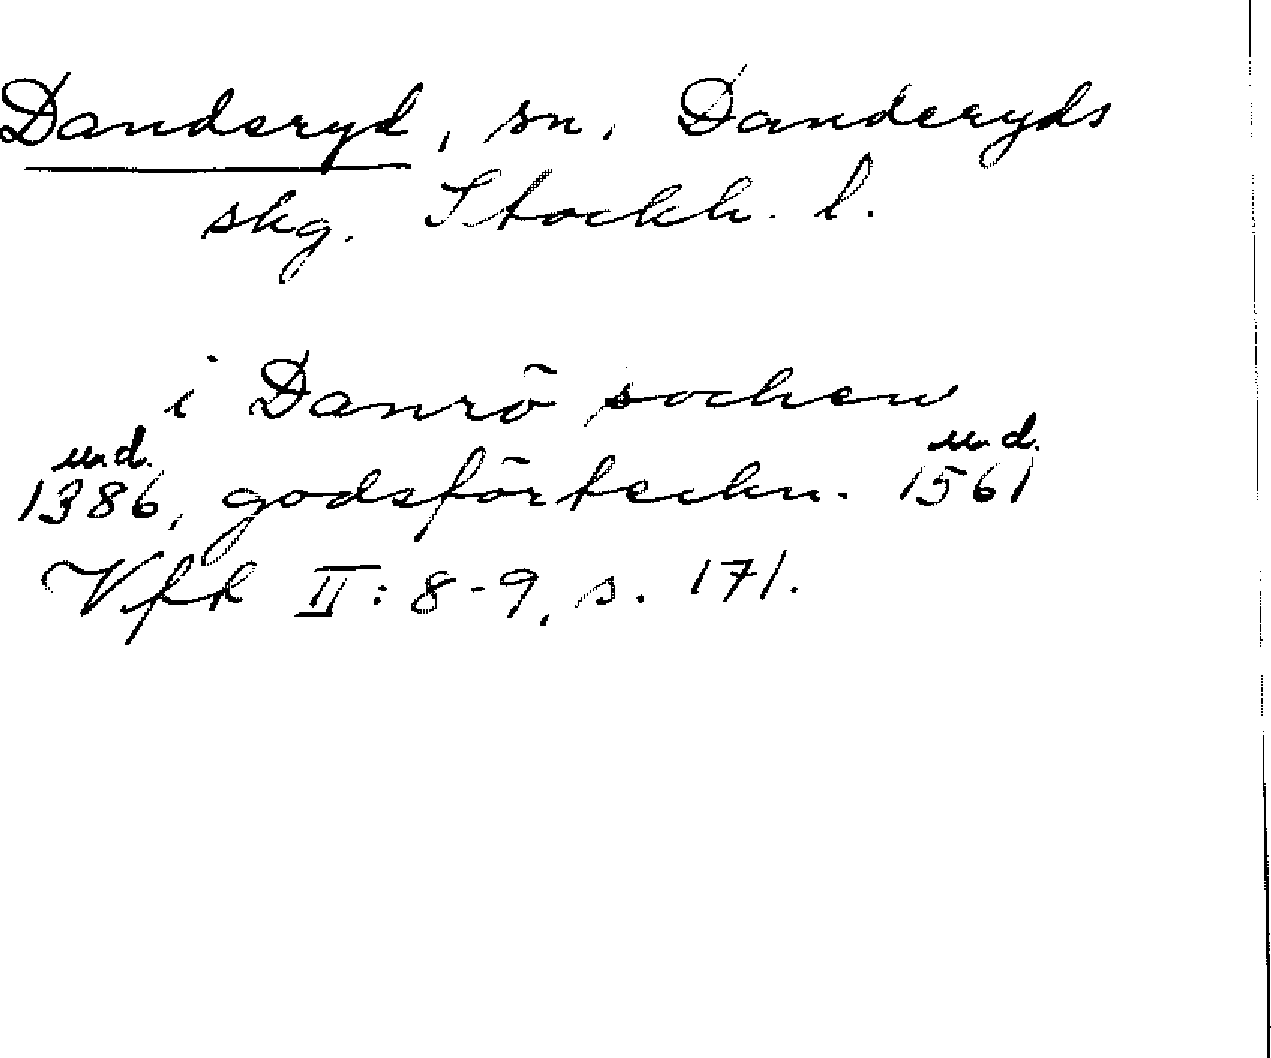 Danderyd, sn. Danderyds
skg. Stockh. l.
i Danrö sochen
und. und.
1386, godsförteckn. 1561
Vfk II: 8-9, s. 171.